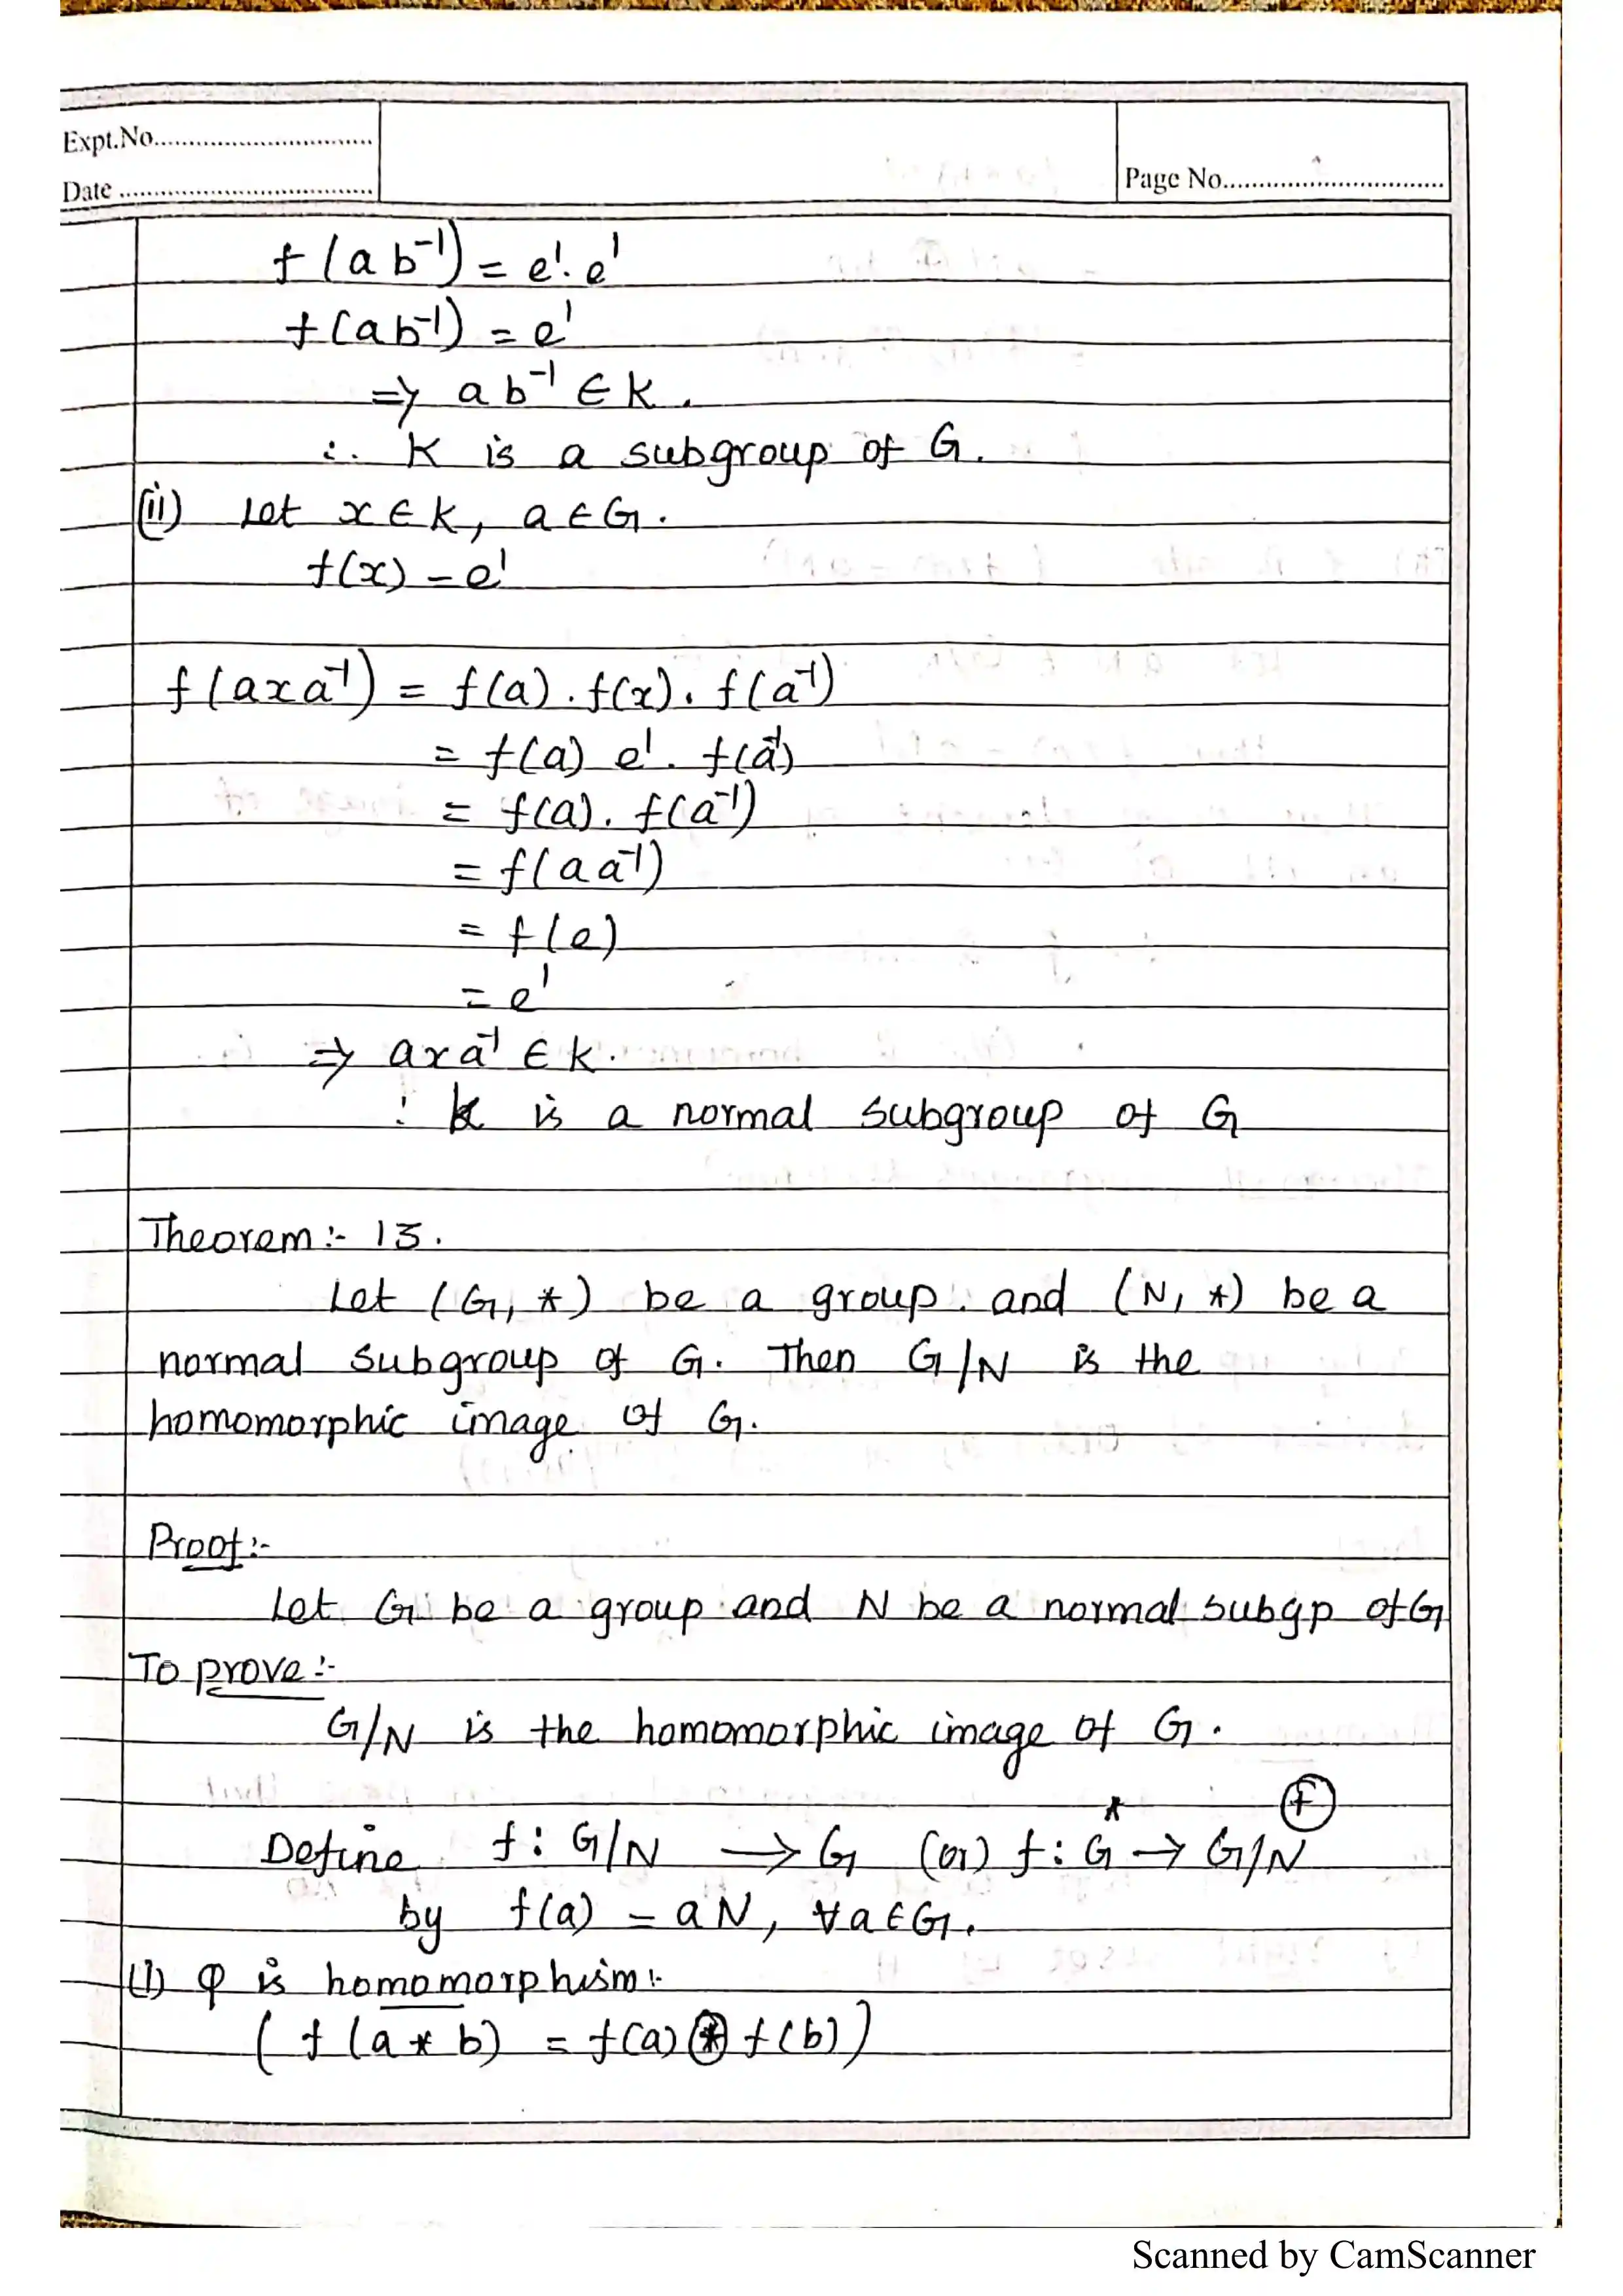 Expt.No..............................
Date ..................................
Page No..............................
f(ab⁻¹) = e'. e'
f(ab⁻¹) = e'
⇒ ab⁻¹ ∈ K.
∴ K is a subgroup of G.
(ii) Let x ∈ K, a ∈ G.
f(x) = e'
f(axa⁻¹) = f(a) . f(x) . f(a⁻¹)
= f(a) e' . f(a⁻¹)
= f(a) . f(a⁻¹)
= f(aa⁻¹)
= f(e)
= e'
⇒ axa⁻¹ ∈ K.
: K is a normal subgroup of G
Theorem :- 13.
Let (G, *) be a group. and (N, *) be a
normal subgroup of G. Then G/N is the
homomorphic image of G.
Proof:-
Let G be a group and N be a normal subgp of G
To prove :-
G/N is the homomorphic image of G.
* ⊕
Define f : G/N → G (or) f : G → G/N
by f(a) = aN, ∀ a ∈ G.
(i) φ is homomorphism:-
( f(a * b) = f(a) ⊛ f(b) )
Scanned by CamScanner